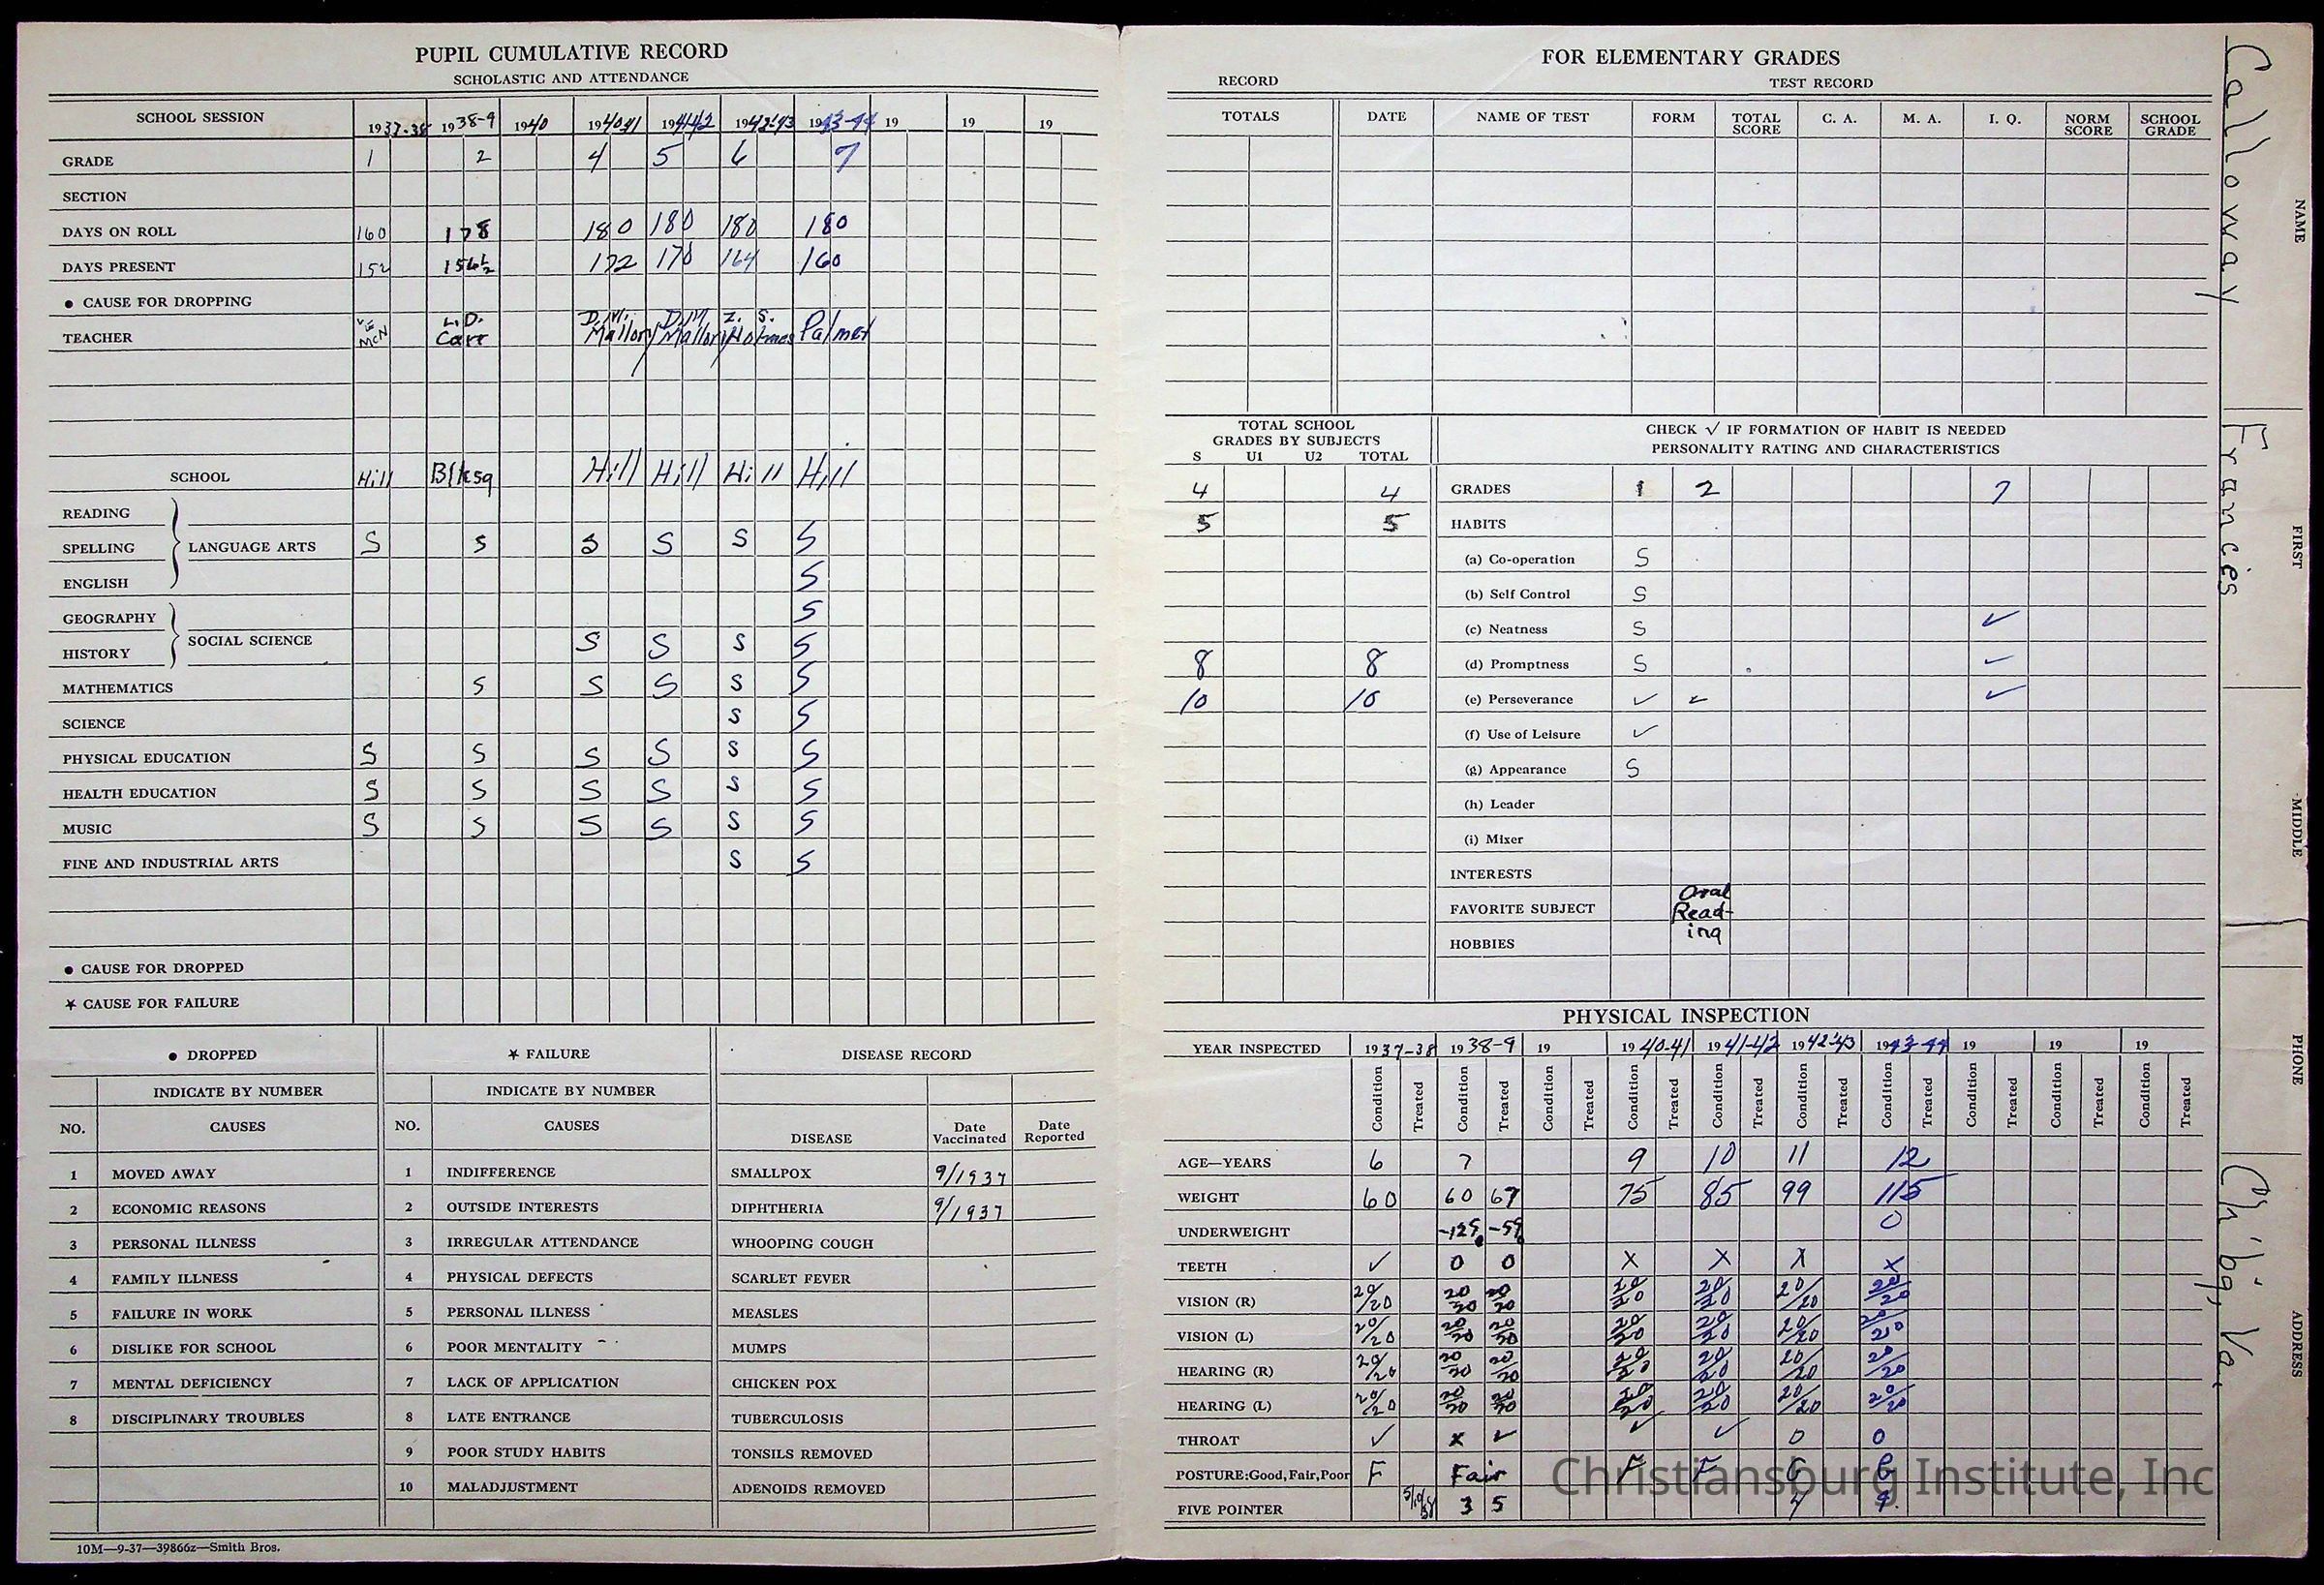 PUPIL CUMULATIVE RECORD
SCHOLASTIC AND ATTENDANCE
SCHOOL SESSION 1937-38 1938-9 1940 1940-41 1941-42 1942-43 1943-44 19 19 19
GRADE 1 2 4 5 6 7
SECTION
DAYS ON ROLL 160 178 180 180 180 180
DAYS PRESENT 152 156½ 172 170 164 160
● CAUSE FOR DROPPING
TEACHER McN L.D. Carr D.M. Mallory D.M. Mallory Z. S. Holmes Palmer
SCHOOL Hill Blksq Hill Hill Hill Hill
READING
SPELLING LANGUAGE ARTS S S S S S S
ENGLISH S
GEOGRAPHY S
HISTORY SOCIAL SCIENCE S S S S
MATHEMATICS S S S S S
SCIENCE S S
PHYSICAL EDUCATION S S S S S S
HEALTH EDUCATION S S S S S S
MUSIC S S S S S S
FINE AND INDUSTRIAL ARTS S S
● CAUSE FOR DROPPED
★ CAUSE FOR FAILURE
● DROPPED
INDICATE BY NUMBER
NO. CAUSES
1 MOVED AWAY
2 ECONOMIC REASONS
3 PERSONAL ILLNESS
4 FAMILY ILLNESS
5 FAILURE IN WORK
6 DISLIKE FOR SCHOOL
7 MENTAL DEFICIENCY
8 DISCIPLINARY TROUBLES
★ FAILURE
INDICATE BY NUMBER
NO. CAUSES
1 INDIFFERENCE
2 OUTSIDE INTERESTS
3 IRREGULAR ATTENDANCE
4 PHYSICAL DEFECTS
5 PERSONAL ILLNESS
6 POOR MENTALITY
7 LACK OF APPLICATION
8 LATE ENTRANCE
9 POOR STUDY HABITS
10 MALADJUSTMENT
DISEASE RECORD
DISEASE Date Vaccinated Date Reported
SMALLPOX 9/1937
DIPHTHERIA 9/1937
WHOOPING COUGH
SCARLET FEVER
MEASLES
MUMPS
CHICKEN POX
TUBERCULOSIS
TONSILS REMOVED
ADENOIDS REMOVED
10M—9-37—39866z—Smith Bros.
FOR ELEMENTARY GRADES
RECORD TEST RECORD
TOTALS DATE NAME OF TEST FORM TOTAL SCORE C. A. M. A. I. Q. NORM SCORE SCHOOL GRADE
TOTAL SCHOOL
GRADES BY SUBJECTS
S U1 U2 TOTAL
4 4
5 5
8 8
10 10
CHECK √ IF FORMATION OF HABIT IS NEEDED
PERSONALITY RATING AND CHARACTERISTICS
GRADES 1 2 7
HABITS
(a) Co-operation S
(b) Self Control S
(c) Neatness S ✓
(d) Promptness S ✓
(e) Perseverance ✓ ✓ ✓
(f) Use of Leisure ✓
(g) Appearance S
(h) Leader
(i) Mixer
INTERESTS
FAVORITE SUBJECT Oral Read-ing
HOBBIES
PHYSICAL INSPECTION
YEAR INSPECTED 1937-38 1938-9 19 1940-41 1941-42 1942-43 1943-44 19 19 19
Condition Treated Condition Treated Condition Treated Condition Treated Condition Treated Condition Treated Condition Treated Condition Treated Condition Treated Condition Treated
AGE—YEARS 6 7 9 10 11 12
WEIGHT 60 60 67 75 85 99 115
UNDERWEIGHT 0
TEETH ✓ 0 0 X X X X
VISION (R) 20/20 20/20 20/20 20/20 20/20 20/20 20/20
VISION (L) 20/20 20/20 20/20 20/20 20/20 20/20 20/20
HEARING (R) 20/20 20/20 20/20 20/20 20/20 20/20 20/20
HEARING (L) 20/20 20/20 20/20 20/20 20/20 20/20 20/20
THROAT ✓ x ✓ ✓ ✓ 0 0
POSTURE: Good, Fair, Poor F Fair F F G G
FIVE POINTER 3 5
Calloway NAME
Francies FIRST
MIDDLE
PHONE
Ch'bg, Va. ADDRESS
Christiansburg Institute, Inc